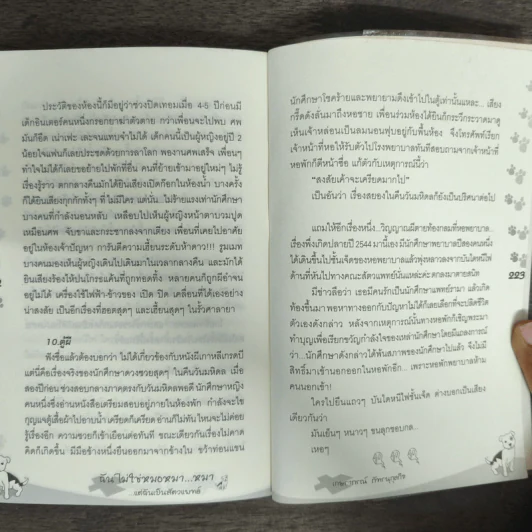 ประวัติของห้องนี้ก็มีอยู่ว่าช่วงปิดเทอมเมื่อ 4-5 ปีก่อนมี
เด็กอินเตอร์คนหนึ่งกรอกยาฆ่าตัวตาย กว่าเพื่อนจะไปพบ ศพ
มันก็อืด เน่าเฟะ เละจนแทบจำไม่ได้ เด็กคนนี้เป็นผู้หญิงอยู่ปี 2
น้อยใจแฟนก็เลยประชดด้วยการลาโลก พองานศพเสร็จ เพื่อนๆ
ทำใจไม่ได้ก็เลยขอย้ายไปพักที่อื่น คนที่ย้ายเข้ามาอยู่ใหม่ๆ ไม่รู้
เรื่องรู้ราว ตกกลางคืนมักได้ยินเสียงเปิดก๊อกในห้องน้ำ บางครั้ง
ก็ได้ยินเสียงกุกกักทั้งๆ ที่ ไม่มีใคร แต่นั่น...ไม่ร้ายแรงเท่านักศึกษา
บางคนที่กำลังนอนหลับ เหลือบไปเห็นผู้หญิงหน้าตาบวมปูด
เหมือนศพ จับขาและกระชากลงจากเตียง เพื่อนที่เคยไปอาศัย
อยู่ในห้องเจ้าปัญหา การันตีความเฮี้ยนระดับห้าดาว!!! รูมเมท
บางคนมองเห็นผู้หญิงเดินไปเดินมาในเวลากลางคืน และมักได้
ยินเสียงร้องไห้ปนโกรธแค้นที่ถูกทอดทิ้ง หลายคนก็ถูกผีอำจน
อยู่ไม่ได้ เครื่องใช้ไฟฟ้า-ข้าวของ เปิด ปิด เคลื่อนที่ได้เองอย่าง
น่าสงสัย เป็นอีกเรื่องที่ฮอตสุดๆ และเฮี้ยนสุดๆ ในรั้วศาลายา
10.ตู้ผี
ฟังชื่อแล้วต้องบอกว่า ไม่ได้เกี่ยวข้องกับหนังผีเกาหลีเกรดบี
แต่นี่คือเรื่องจริงของนักศึกษาดวงซวยสุดๆ ในคืนวันมหิดล เมื่อ
สองปีก่อน ช่วงสอบกลางภาคตรงกับวันมหิดลพอดี นักศึกษาหญิง
คนหนึ่งซึ่งอ่านหนังสือเตรียมสอบอยู่ภายในห้องพัก กำลังจะไข
กุญแจตู้เสื้อผ้าไปอาบน้ำ เครียดก็เครียด อ่านก็ไม่ทัน ไหนจะไม่ค่อย
รู้เรื่องอีก ความซวยก็เข้าเยือนต่อทันที ขณะเดียวกันเรื่องไม่คาด
คิดก็เกิดขึ้น มีมือข้างหนึ่งยื่นออกมาจากข้างใน คว้าท่อนแขน
ฉันไม่ใช่หมอหมา...หมา
แต่ฉันเป็นสัตวแพทย์
นักศึกษาโชคร้ายและพยายามดึงเข้าไปในตู้เท่านั้นแหละ... เสียง
กรี๊ดดังลั่นมาถึงหอชาย เพื่อนร่วมห้องได้ยินก็กระวีกระวาดมาดู
เห็นเจ้าหล่อนเป็นลมนอนฟุบอยู่กับพื้นห้อง จึงโทรศัพท์เรียก
เจ้าหน้าที่หอให้รับตัวไปโรงพยาบาลทันทีสอบถามจากเจ้าหน้าที่
หอพักก็ตีหน้าซื่อ แก้ตัวกับเหตุการณ์นี้ว่า
"สงสัยเค้าจะเครียดมากไป"
เป็นอันว่า เรื่องสยองในคืนวันมหิดลก็ยังเป็นปริศนาต่อไป
แถมให้อีกเรื่องหนึ่ง...วิญญาณผีตายท้องกลมที่หอพยาบาล...
เรื่องพึ่งเกิดปลายปี 2544 มานี่เอง มีนักศึกษาพยาบาลปีสองคนหนึ่ง
ได้เดินขึ้นไปชั้นเจ็ดของหอพยาบาลแล้วพุ่งหลาวลงจากบันไดหนีไฟ
ด้านที่หันไปทางคณะสัตวแพทย์นั่นแหล่ะค่ะ ตกลงมาตายสนิท
มีข่าวลือว่า เธอมีคนรักเป็นนักศึกษาแพทย์รามา แล้วเกิด
ท้องขึ้นมา พอหาทางออกกับปัญหาไม่ได้ก็เลยเลือกที่จะปลิดชีวิต
ตัวเองดังกล่าว หลังจากเหตุการณ์นั้นทางหอพักก็เชิญพระมา
ทำบุญเพื่อเรียกขวัญกำลังใจของเหล่านักศึกษาโดยมีแถลงการณ์
ว่า... นักศึกษาดังกล่าวได้พ้นสภาพของนักศึกษาไปแล้ว จึงไม่มี
สิทธิ์มาเข้านอกออกในหอพักอีก ...เพราะหอพักพยาบาลห้าม
คนนอกเข้า!
ใครไปยืนแถวๆ บันไดหนีไฟชั้นเจ็ด ต่างบอกเป็นเสียง
เดียวกันว่า
มันเย็นๆ หนาวๆ ขนลุกชอบกล...
เหอๆ
223